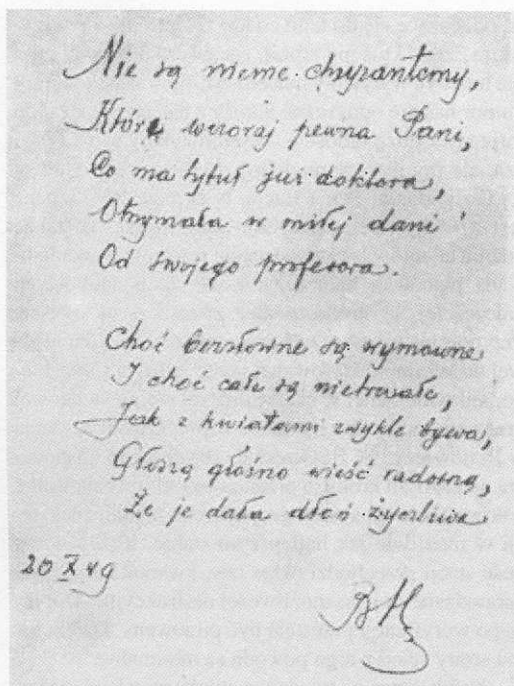 Nie są nieme chryzantemy,
Które wczoraj pewna Pani,
Co ma tytuł już doktora,
Otrzymała w miłej dani
Od swojego profesora.
Choć bezsłowne są wymowne
I choć całe są nietrwałe,
Jak z kwiatami zwykle bywa,
Głoszą głośno wieść radosną,
Że je dała dłoń życzliwa
20 X 49